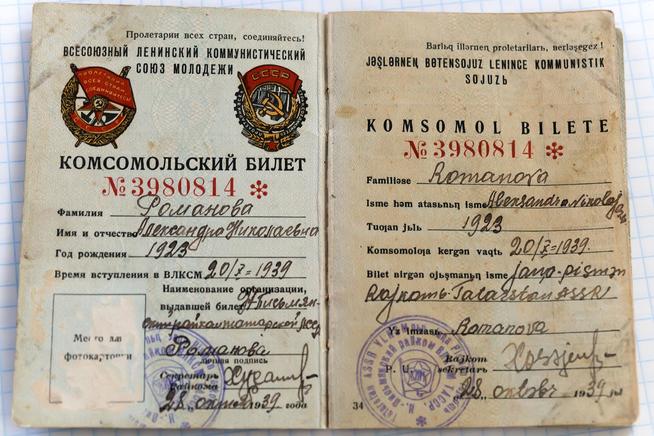 Пролетарии всех стран, соединяйтесь!
ВСЕСОЮЗНЫЙ ЛЕНИНСКИЙ КОММУНИСТИЧЕСКИЙ
СОЮЗ МОЛОДЕЖИ
СССР
КОМСОМОЛЬСКИЙ БИЛЕТ
№3980814 *
Фамилия Романова
Имя и отчество Александра Николаевна
Год рождения 1923
Время вступления в ВЛКСМ 20/X-1939
Наименование организации,
выдавшей билет Н Письмян-
Татарской АССР
Место для
фотокарточки
Романова
личная подпись
Секретарь
Райкома
28 октября 1939 года
Barlьq illərneꞑ proletarilarь, berləşegez!
JƏŞLƏRNEꞐ BƏTENSOJUZ LENINCE KOMMUNISTIK
SOJUZЬ
KOMSOMOL BILETE
№3980814 *
Familiəse Romanova
Isme həm atasьnьꞑ isme Aleksandra Nikolajevna
Tuƣan jalь 1923
Komsomolƣa kergən vaqtь 20/X-1939.
Bilet birgən ojьşmanьꞑ isme Jaꞑa-Pismən
Rajkomь Tatarstan ASSR
Yz imzasь Romanova
Rajkom
sekretarь
P. U.
28 октябрь 1939 jьl
34